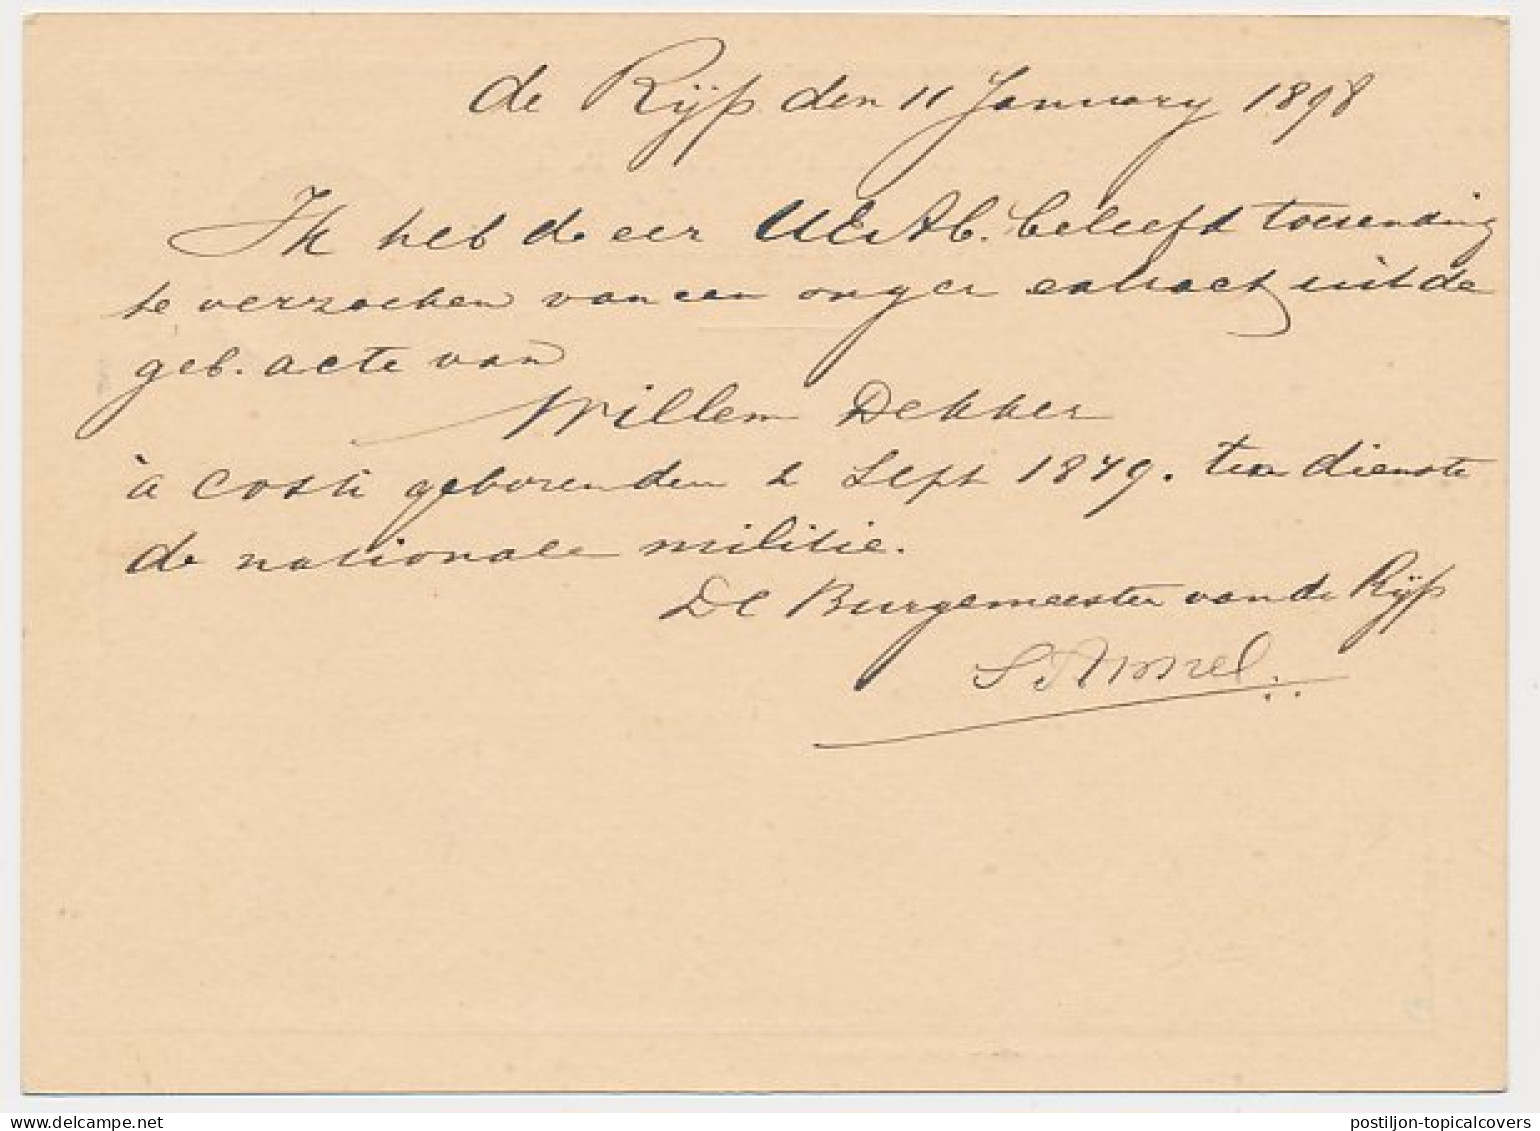 de Rijp den 11 January 1898
Ik heb de eer UEAb. beleefd toezending
te verzoeken van een ongez extract uit de
geb. acte van
Willem Dekker
à costi geboren den 2 Sept 1879. ten dienste
de nationale militie.
De Burgemeester van de Rijp
postiljon-topicalcovers postiljon-topicalcovers.com